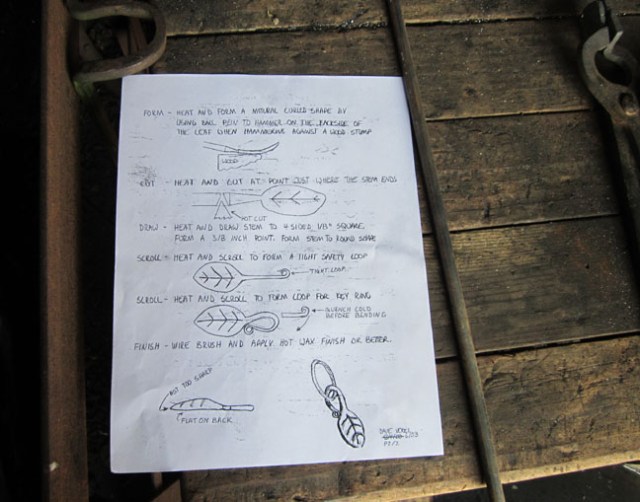 FORM - HEAT AND FORM A NATURAL CURLED SHAPE BY
USING BALL PEIN TO HAMMER ON THE BACKSIDE OF
THE LEAF WHEN HAMMERING AGAINST A WOOD STUMP
WOOD
CUT - HEAT AND CUT AT POINT JUST WHERE THE STEM ENDS
HOT CUT
DRAW - HEAT AND DRAW STEM TO 4 SIDED 1/8" SQUARE
FORM A 3/8 INCH POINT. FORM STEM TO ROUND SHAPE
SCROLL - HEAT AND SCROLL TO FORM A TIGHT SAFETY LOOP
TIGHT LOOP
SCROLL - HEAT AND SCROLL TO FORM LOOP FOR KEY RING
QUENCH COLD
BEFORE BENDING
FINISH - WIRE BRUSH AND APPLY HOT WAX FINISH OR BETTER.
NOT TOO SHARP
FLAT ON BACK
DAVE